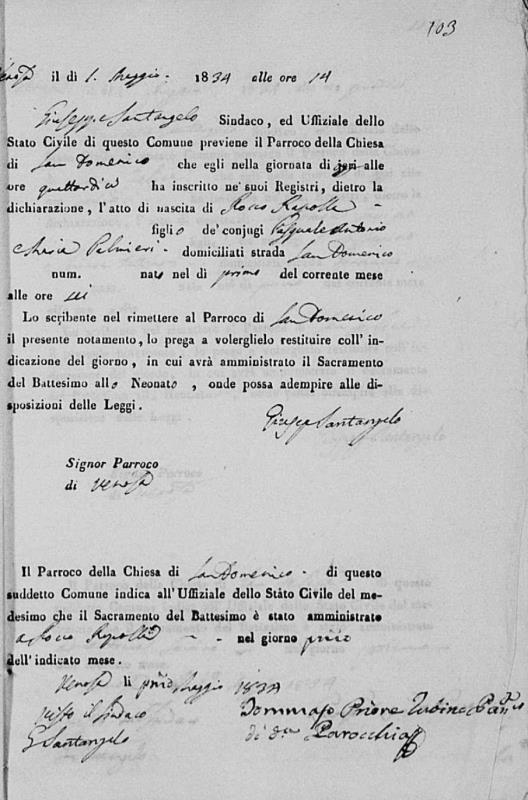 103
Venosa il dì 1. Maggio. 1834 alle ore 14
Giuseppe Santangelo Sindaco, ed Uffiziale dello
Stato Civile di questo Comune previene il Parroco della Chiesa
di San Domenico che egli nella giornata di oggi alle
ore quattordici ha inscritto ne' suoi Registri, dietro la
dichiarazione, l'atto di nascita di Rocco Rapolla
figlio de' conjugi Pasquale Antonio
Maria Palmieri. domiciliati strada San Domenico
num. nato nel dì primo del corrente mese
alle ore sei
Lo scribente nel rimettere al Parroco di San Domenico
il presente notamento, lo prega a volerglielo restituire coll' in-
dicazione del giorno, in cui avrà amministrato il Sacramento
del Battesimo allo Neonato, onde possa adempire alle di-
sposizioni delle Leggi.
Santangelo
Signor Parroco
di Venosa
Il Parroco della Chiesa di San Domenico. di questo
suddetto Comune indica all' Uffiziale dello Stato Civile del me-
desimo che il Sacramento del Battesimo è stato amministrato
a Rocco Rapolla - - nel giorno
dell' indicato mese.
Venosa li Maggio 1834
Visto il Sindaco
G Santangelo
Tommaso Priore
di Parocchia